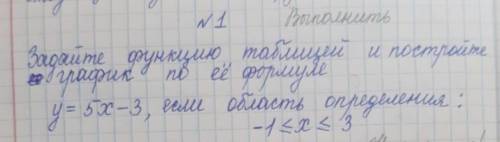 №1 Выполнить
Задайте функцию таблицей и постройте
график по её формуле
y = 5x - 3, если область определения:
-1 ≤ x ≤ 3